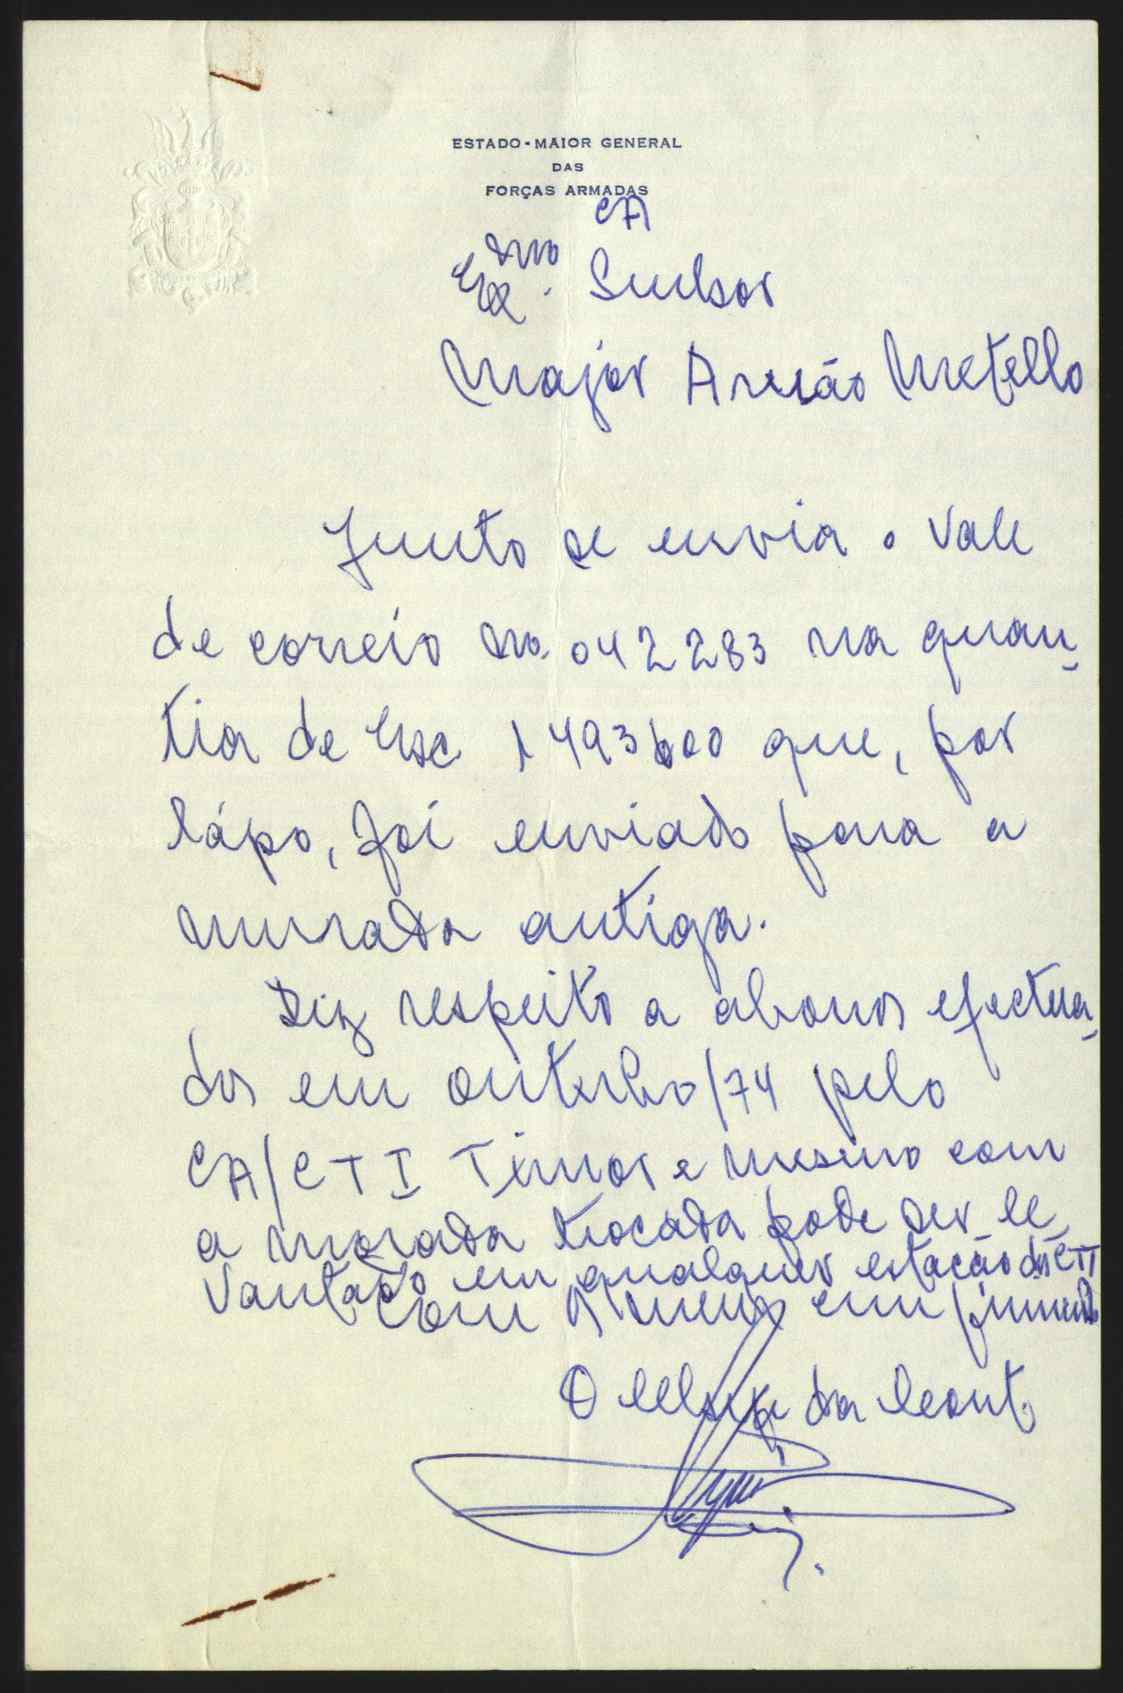 ESTADO-MAIOR GENERAL
DAS
FORÇAS ARMADAS
CA
Exmo. Senhor
Major Arnão Metello
Junto se envia o vale
de correio no. 042283 na quan-
tia de Esc 1493$00 que, por
lápso, foi enviado para a
murada antiga.
Diz respeito a abonos efectua-
dos em outubro/74 pelo
CA/CTI Timor e mesmo com
a morada trocada pode ser le-
vantado em qualquer estação dos CTT
Com os meus cumprimentos
O Chefe da Cont.